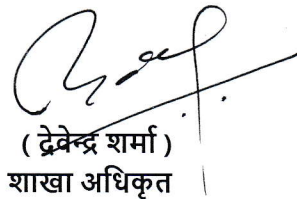 ( द्रेवेन्द्र शर्मा )
शाखा अधिकृत